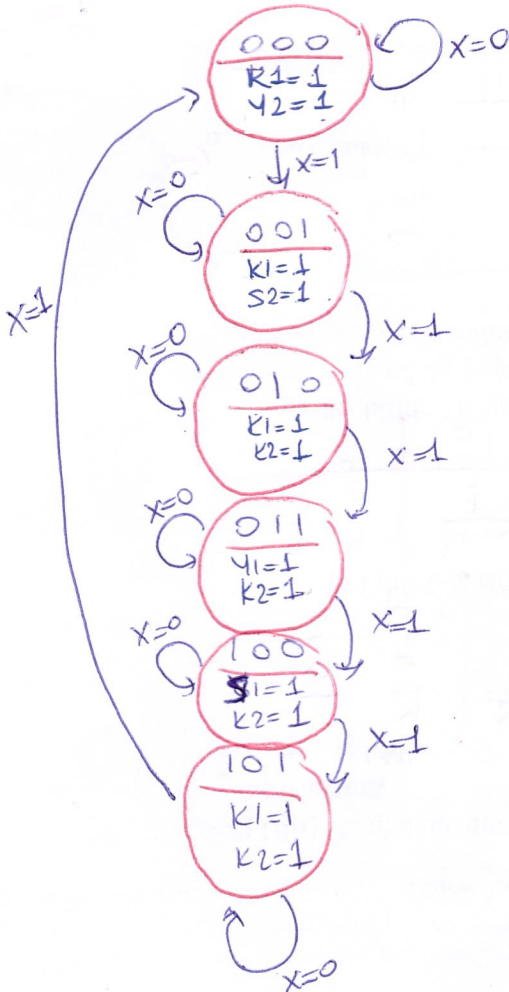 000
X=0
R1=1
Y2=1
X=1
X=0
001
K1=1
S2=1
X=1
X=1
X=0
010
K1=1
K2=1
X=1
X=0
011
Y1=1
K2=1
X=1
X=0
100
S1=1
K2=1
X=1
101
K1=1
K2=1
X=0